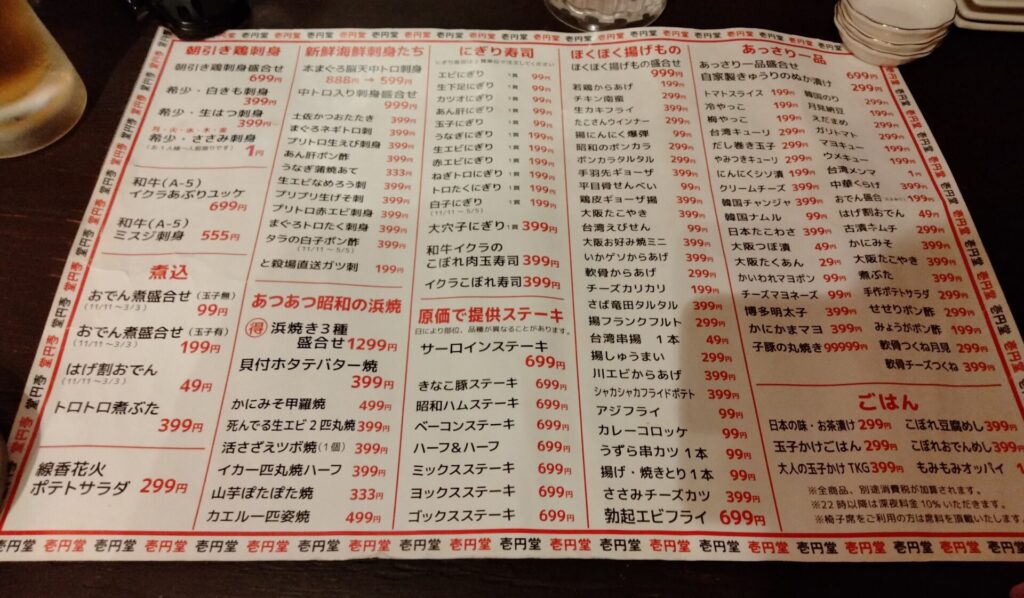 朝引き鶏刺身
朝引き鶏刺身盛合せ
699円
希少・白きも刺身
399円
希少・生はつ刺身
399円
月・火・水・木・金
希少・ささみ刺身
(お1人様一人前限りです)
1円
和牛(A-5)
イクラあぶりユッケ
699円
和牛(A-5)
ミスジ刺身 555円
煮込
おでん煮盛合せ(玉子無)
(11/11～3/3)
99円
おでん煮盛合せ(玉子有)
(11/11～3/3)
199円
はげ割おでん
(11/11～3/3)
49円
トロトロ煮ぶた
399円
線香花火
ポテトサラダ 299円
新鮮海鮮刺身たち
本まぐろ脳天中トロ刺身
888円 → 599円
中トロ入り刺身盛合せ
999円
土佐かつおたたき 399円
まぐろネギトロ刺 399円
プリトロ生えび刺身 399円
あん肝ポン酢 399円
うなぎ蒲焼あて 333円
生エビなめろう刺 399円
プリプリ生げそ刺 399円
プリトロ赤エビ刺身 399円
まぐろトロたく刺 399円
タラの白子ポン酢 399円
(11/11～5/5)
と殺場直送ガツ刺 199円
あつあつ昭和の浜焼
得 浜焼き3種
盛合せ1299円
貝付ホタテバター焼
399円
かにみそ甲羅焼 499円
死んでる生エビ2匹丸焼399円
活さざえツボ焼(1個) 399円
イカ一匹丸焼ハーフ 399円
山芋ぽたぽた焼 333円
カエル一匹姿焼 499円
にぎり寿司
エビにぎり 1貫 99円
生下足にぎり 1貫 99円
カツオにぎり 1貫 99円
あん肝にぎり 1貫 99円
玉子にぎり 1貫 99円
うなぎにぎり 1貫 199円
生エビにぎり 1貫 199円
赤エビにぎり 1貫 199円
ねぎトロにぎり 1貫 199円
トロたくにぎり 1貫 199円
白子にぎり 1貫 199円
(11/11～5/5)
大穴子にぎり 1貫 399円
和牛イクラの
こぼれ肉玉寿司 399円
イクラこぼれ寿司 399円
原価で提供ステーキ
日により部位、品種が異なることがあります。
サーロインステーキ
699円
きなこ豚ステーキ 699円
昭和ハムステーキ 699円
ベーコンステーキ 699円
ハーフ&ハーフ 699円
ミックスステーキ 699円
ヨックスステーキ 699円
ゴックスステーキ 699円
ぼくぼく揚げもの
ぼくぼく揚げもの盛合せ
999円
若鶏からあげ 399円
チキン南蛮 299円
生カキフライ 399円
たこさんウインナー 299円
揚にんにく爆弾 99円
昭和のポンカラ 299円
ポンカラタルタル 399円
手羽先ギョーザ 399円
平目骨せんべい 99円
鶏皮ギョーザ揚 399円
大阪たこやき 399円
台湾えびせん 99円
大阪お好み焼ミニ 399円
いかゲソからあげ 399円
軟骨からあげ 399円
チーズカリカリ 199円
さば竜田タルタル 399円
揚フランクフルト 299円
台湾串揚 1本 49円
揚しゅうまい 299円
川エビからあげ 399円
シャカシャカフライドポテト 399円
アジフライ 99円
カレーコロッケ 99円
うずら串カツ 1本 99円
揚げ・焼きとり 1本 99円
ささみチーズカツ 399円
勃起エビフライ 699円
あっさり一品
あっさり一品盛合せ
699円
自家製きゅうりのぬか漬け
299円
トマトスライス 199円
冷やっこ 199円
梅やっこ 199円
台湾キューリ 299円
だし巻き玉子 299円
やみつきキューリ 299円
にんにくシソ漬 199円
クリームチーズ 399円
韓国チャンジャ 399円
韓国ナムル 99円
日本たこわさ 399円
大阪つぼ漬 49円
大阪たくあん 29円
かいわれマヨポン 99円
チーズマヨネーズ 99円
博多明太子 399円
かにかまマヨ 399円
子豚の丸焼き 99999円
韓国のり
月見納豆
えだまめ
ガリトマト
マヨキュー
ウメキュー 199円
台湾メンマ 1円
中華くらげ 399円
おでん盛合
はげ割おでん 49円
古漬キムチ 299円
かにみそ 399円
大阪たこやき 399円
煮ぶた 399円
手作ポテトサラダ 299円
せせりポン酢 299円
みょうがポン酢 199円
軟骨つくね月見 299円
軟骨チーズつくね 399円
ごはん
日本の味・お茶漬け 299円
玉子かけごはん 299円
大人の玉子かけ TKG399円
こぼれ豆腐めし399円
こぼれおでんめし399円
もみもみオッパイ 1
※全商品、別途消費税が加算されます。
※22時以降は深夜料金10%いただきます。
※椅子席をご利用の方は席料を頂戴いたします
壱円堂